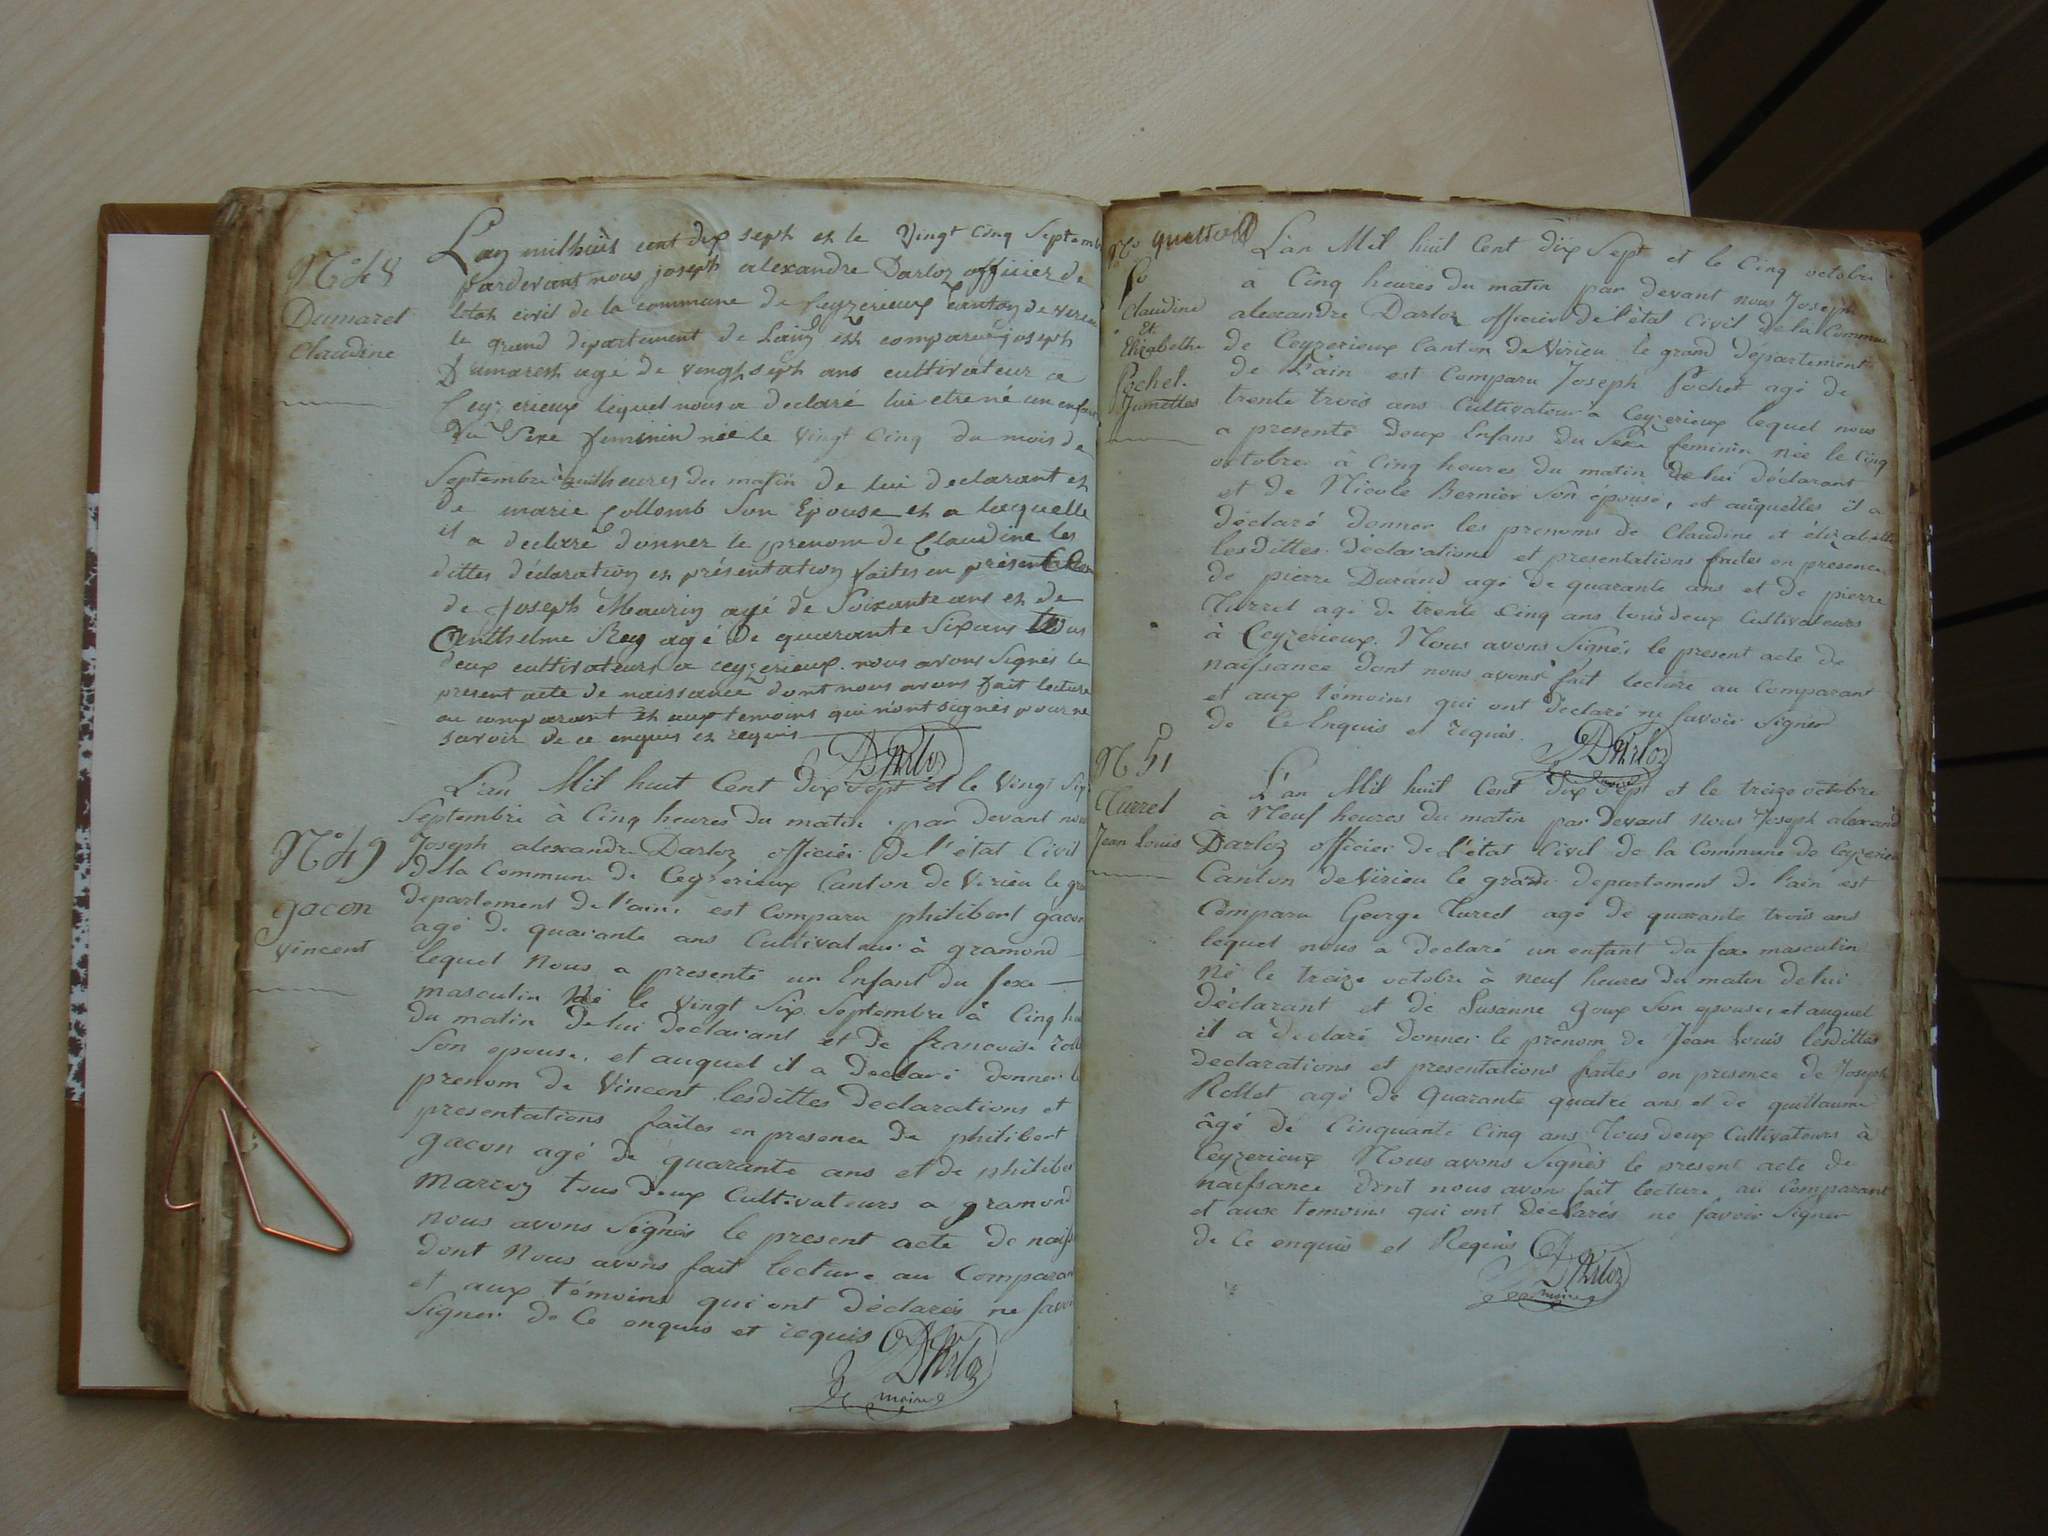 N° 48
Dumaret
Claudine
L'an mil huit cent dix sept et le vingt cinq Septemb
pardevant nous joseph alexandre Darloz officier de
letat civil de la commune de Ceyzerieux Canton de virieu
le grand departement de Lain est comparu joseph
Dumarest agé de vingt sept ans cultivateur a
Ceyzerieux lequel nous a declaré lui etre né un enfant
du Sexe feminin née le vingt cinq du mois de
Septembre à huit heures du matin de lui declarant et
de marie Collomb Son Epouse et a laquelle
il a declaré donner le prenom de Claudine les
dittes déclaration et présentation faites en présent
de Joseph Maurin agé de Soixante ans et de
Anthelme Rey agé de quarante Six ans tous
deux cultivateurs a ceyzerieux nous avons Signés le
present acte de naissance dont nous avons fait lecture
au comparant et aux temoins qui n'ont signés pour ne
savoir de ce enquis et requis
Darloz
N° 49
gacon
vincent
L'an Mil huit Cent Dix Sept et le Vingt Six
Septembre à Cinq heures Du matin par devant nous
Joseph alexandre Darloz officier De l'état Civil
De la Commune de Ceyzerieux Canton de Virieu le gra
departement de l'ain est Comparu philibert gacon
agé de quarante ans Cultivateur à gramond
lequel Nous a presenté un Enfant du Sexe
masculin Né le Vingt Six Septembre à Cinq heu
du matin De lui Declarant et De francoise
Son epouse, et auquel il a Declaré donner le
prenom de Vincent lesdittes Declarations et
presentations faites en presence De philibert
gacon agé de quarante ans et de philiber
Marcoz tous Deux Cultivateurs a gramond
nous avons Signés le present acte de naiss
dont Nous avons fait lecture au Comparan
et aux témoins qui ont Déclarés ne Savoir
Signer De Ce enquis et requis Darloz
maire
N°
50
Claudine
Et
Elizabethe
Pochet.
Jumelles
L'an Mil huit Cent dix Sept et le Cinq octobre
a Cinq heures Du matin par devant nous Joseph
alexandre Darloz officier de l'état Civil de la Commune
de Ceyzerieux Canton de Virieu le grand département
de l'ain est Comparu Joseph Pochet agé de
trente trois ans Cultivateur a Ceyzerieux lequel nous
a presenté Deux Enfans Du Sexe feminin née le Cinq
octobre à Cinq heures du matin de lui déclarant
et de Nicole Bernier Son épouse, et auquelles il a
déclaré donner les prenoms de Claudine et élizabethe
lesdittes déclarations et presentations faites en presence
de pierre Durand agé de quarante ans et de pierre
Turrel agé de trente Cinq ans tous deux Cultivateurs
à Ceyzerieux. Nous avons Signés le present acte de
naissance dont nous avons fait lecture au Comparant
et aux témoins qui ont déclaré ne Savoir Signer
de Ce Enquis et requis.
Darloz
N° 51
Turrel
Jean Louis
L'an Mil huit Cent Dix Sept et le treize octobre
à Neuf heures du matin par devant nous Joseph alexand
Darloz officier de l'état Civil de la Commune de Ceyzerieu
Canton de Virieu le grand departement de l'ain est
Comparu George Turrel agé de quarante trois ans
lequel nous a Declaré un enfant du Sexe masculin
Né le treize octobre à neuf heures du matin de lui
déclarant et de Susanne goux Son epouse, et auquel
il a Declaré donner le prénom de Jean Louis lesdittes
declarations et presentations faites en presence de Joseph
Rollet agé de Quarante quatre ans et de guillaume
âgé de Cinquante Cinq ans, Tous deux Cultivateurs à
Ceyzerieux Nous avons Signés le present acte de
naissance dont nous avons fait lecture au Comparant
et aux temoins qui ont déclarés ne savoir Signer
de Ce enquis et Requis
Darloz
maire